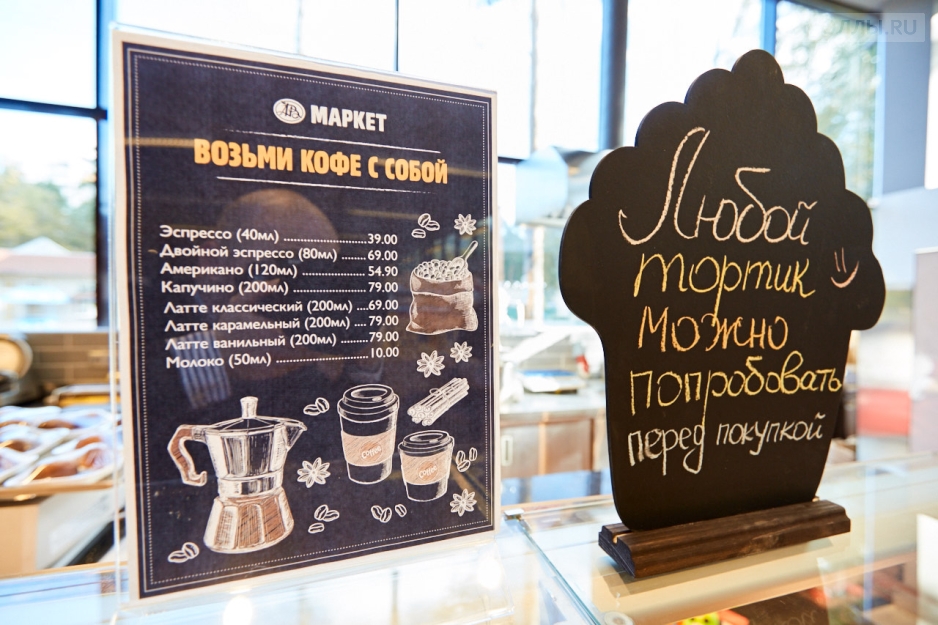 МАРКЕТ
ВОЗЬМИ КОФЕ С СОБОЙ
Эспрессо (40мл) ......................39.00
Двойной эспрессо (80мл) .......69.00
Американо (120мл) .................54.90
Капучино (200мл) ....................79.00
Латте классический (200мл) ...69.00
Латте карамельный (200мл) ....79.00
Латте ванильный (200мл) ........79.00
Молоко (50мл) .........................10.00
Coffee
COFFEE
Любой
тортик
можно
попробовать
перед покупкой